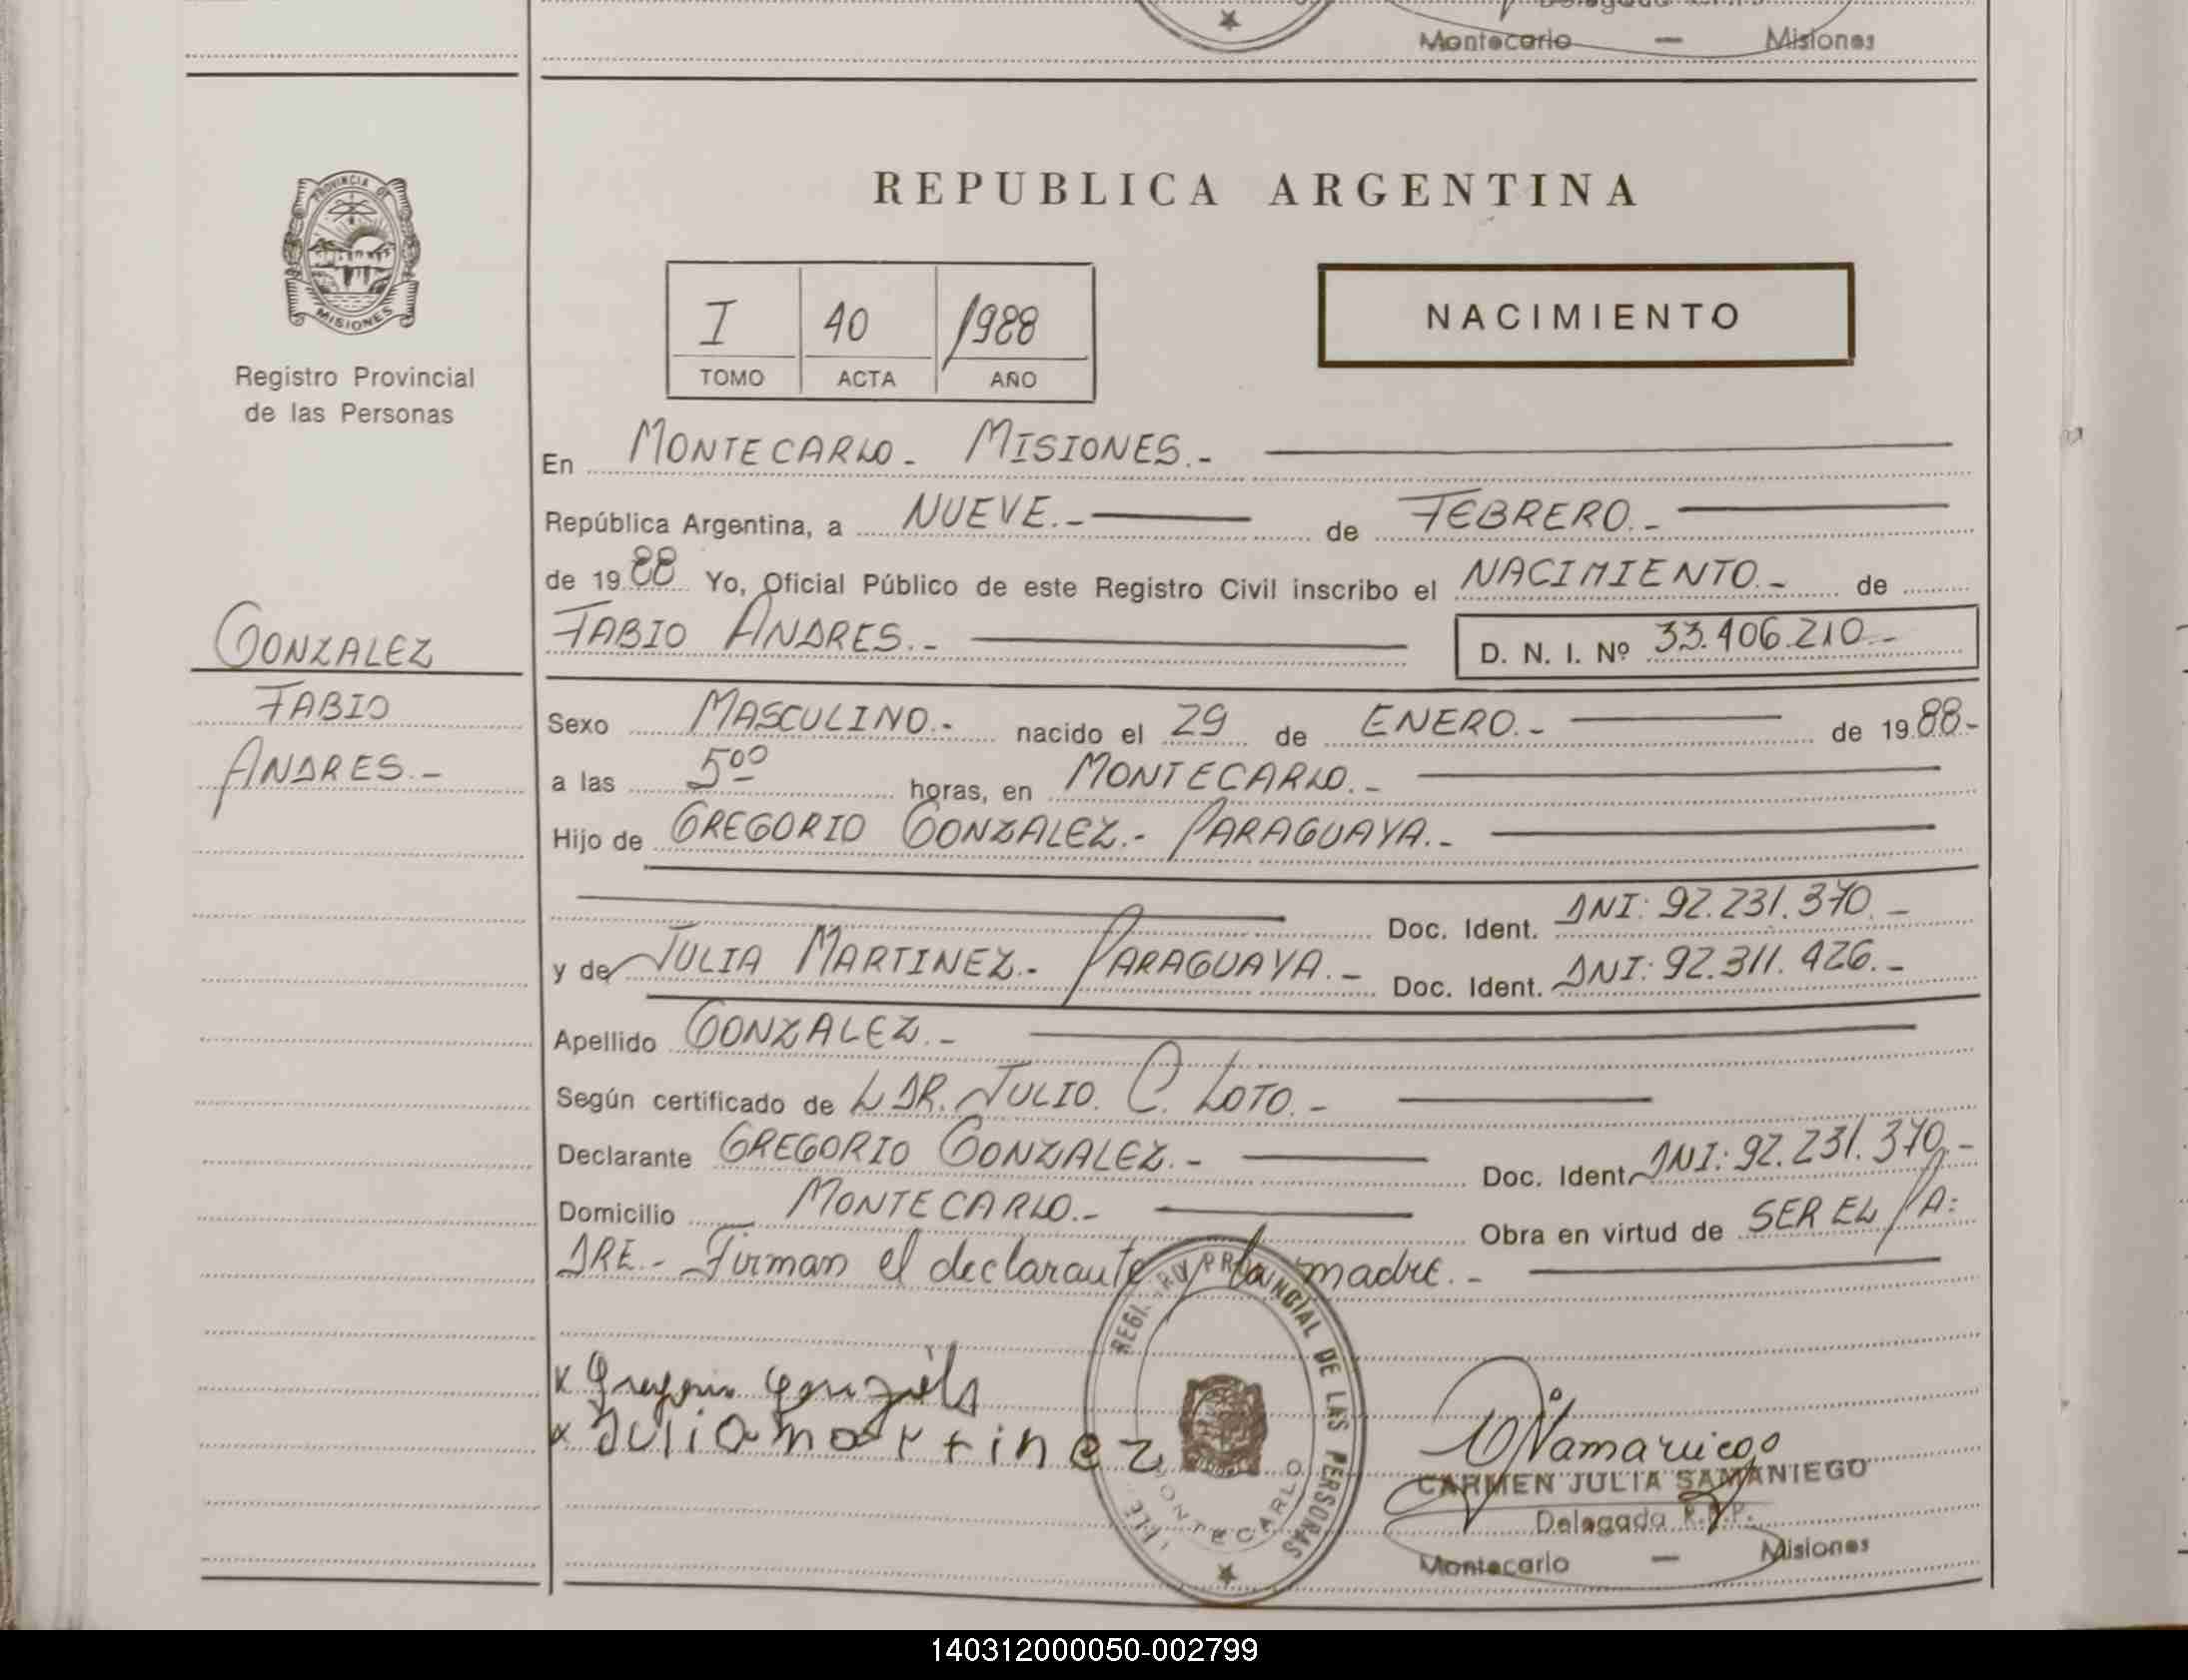 Montecarlo — Misiones
PROVINCIA DE
MISIONES
Registro Provincial
de las Personas
REPUBLICA ARGENTINA
I 40 1988
TOMO ACTA AÑO
NACIMIENTO
En MONTECARLO - MISIONES.-
República Argentina, a NUEVE.- de FEBRERO.-
de 1988 Yo, Oficial Público de este Registro Civil inscribo el NACIMIENTO.- de
GONZALEZ
FABIO
ANDRES.-
FABIO ANDRES.- D. N. I. Nº 33.406.210.-
Sexo MASCULINO.- nacido el 29 de ENERO.- de 1988.-
a las 5⁰⁰ horas, en MONTECARLO.-
Hijo de GREGORIO GONZALEZ.- PARAGUAYA.-
Doc. Ident. DNI: 92.231.370.-
y de JULIA MARTINEZ.- PARAGUAYA.- Doc. Ident. DNI: 92.311.426.-
Apellido GONZALEZ.-
Según certificado de L DR. JULIO. C. LOTO.-
Declarante GREGORIO GONZALEZ.- Doc. Ident. DNI: 92.231.370.-
Domicilio MONTECARLO.- Obra en virtud de SER EL PA:
DRE.- Firman el declarante y la madre.-
x Gregorio
x Julia martinez
PROVINCIAL DE LAS PERSONAS
MONTECARLO
CARMEN JULIA SAMANIEGO
Delegada R.P.P.
Montecarlo — Misiones
140312000050-002799